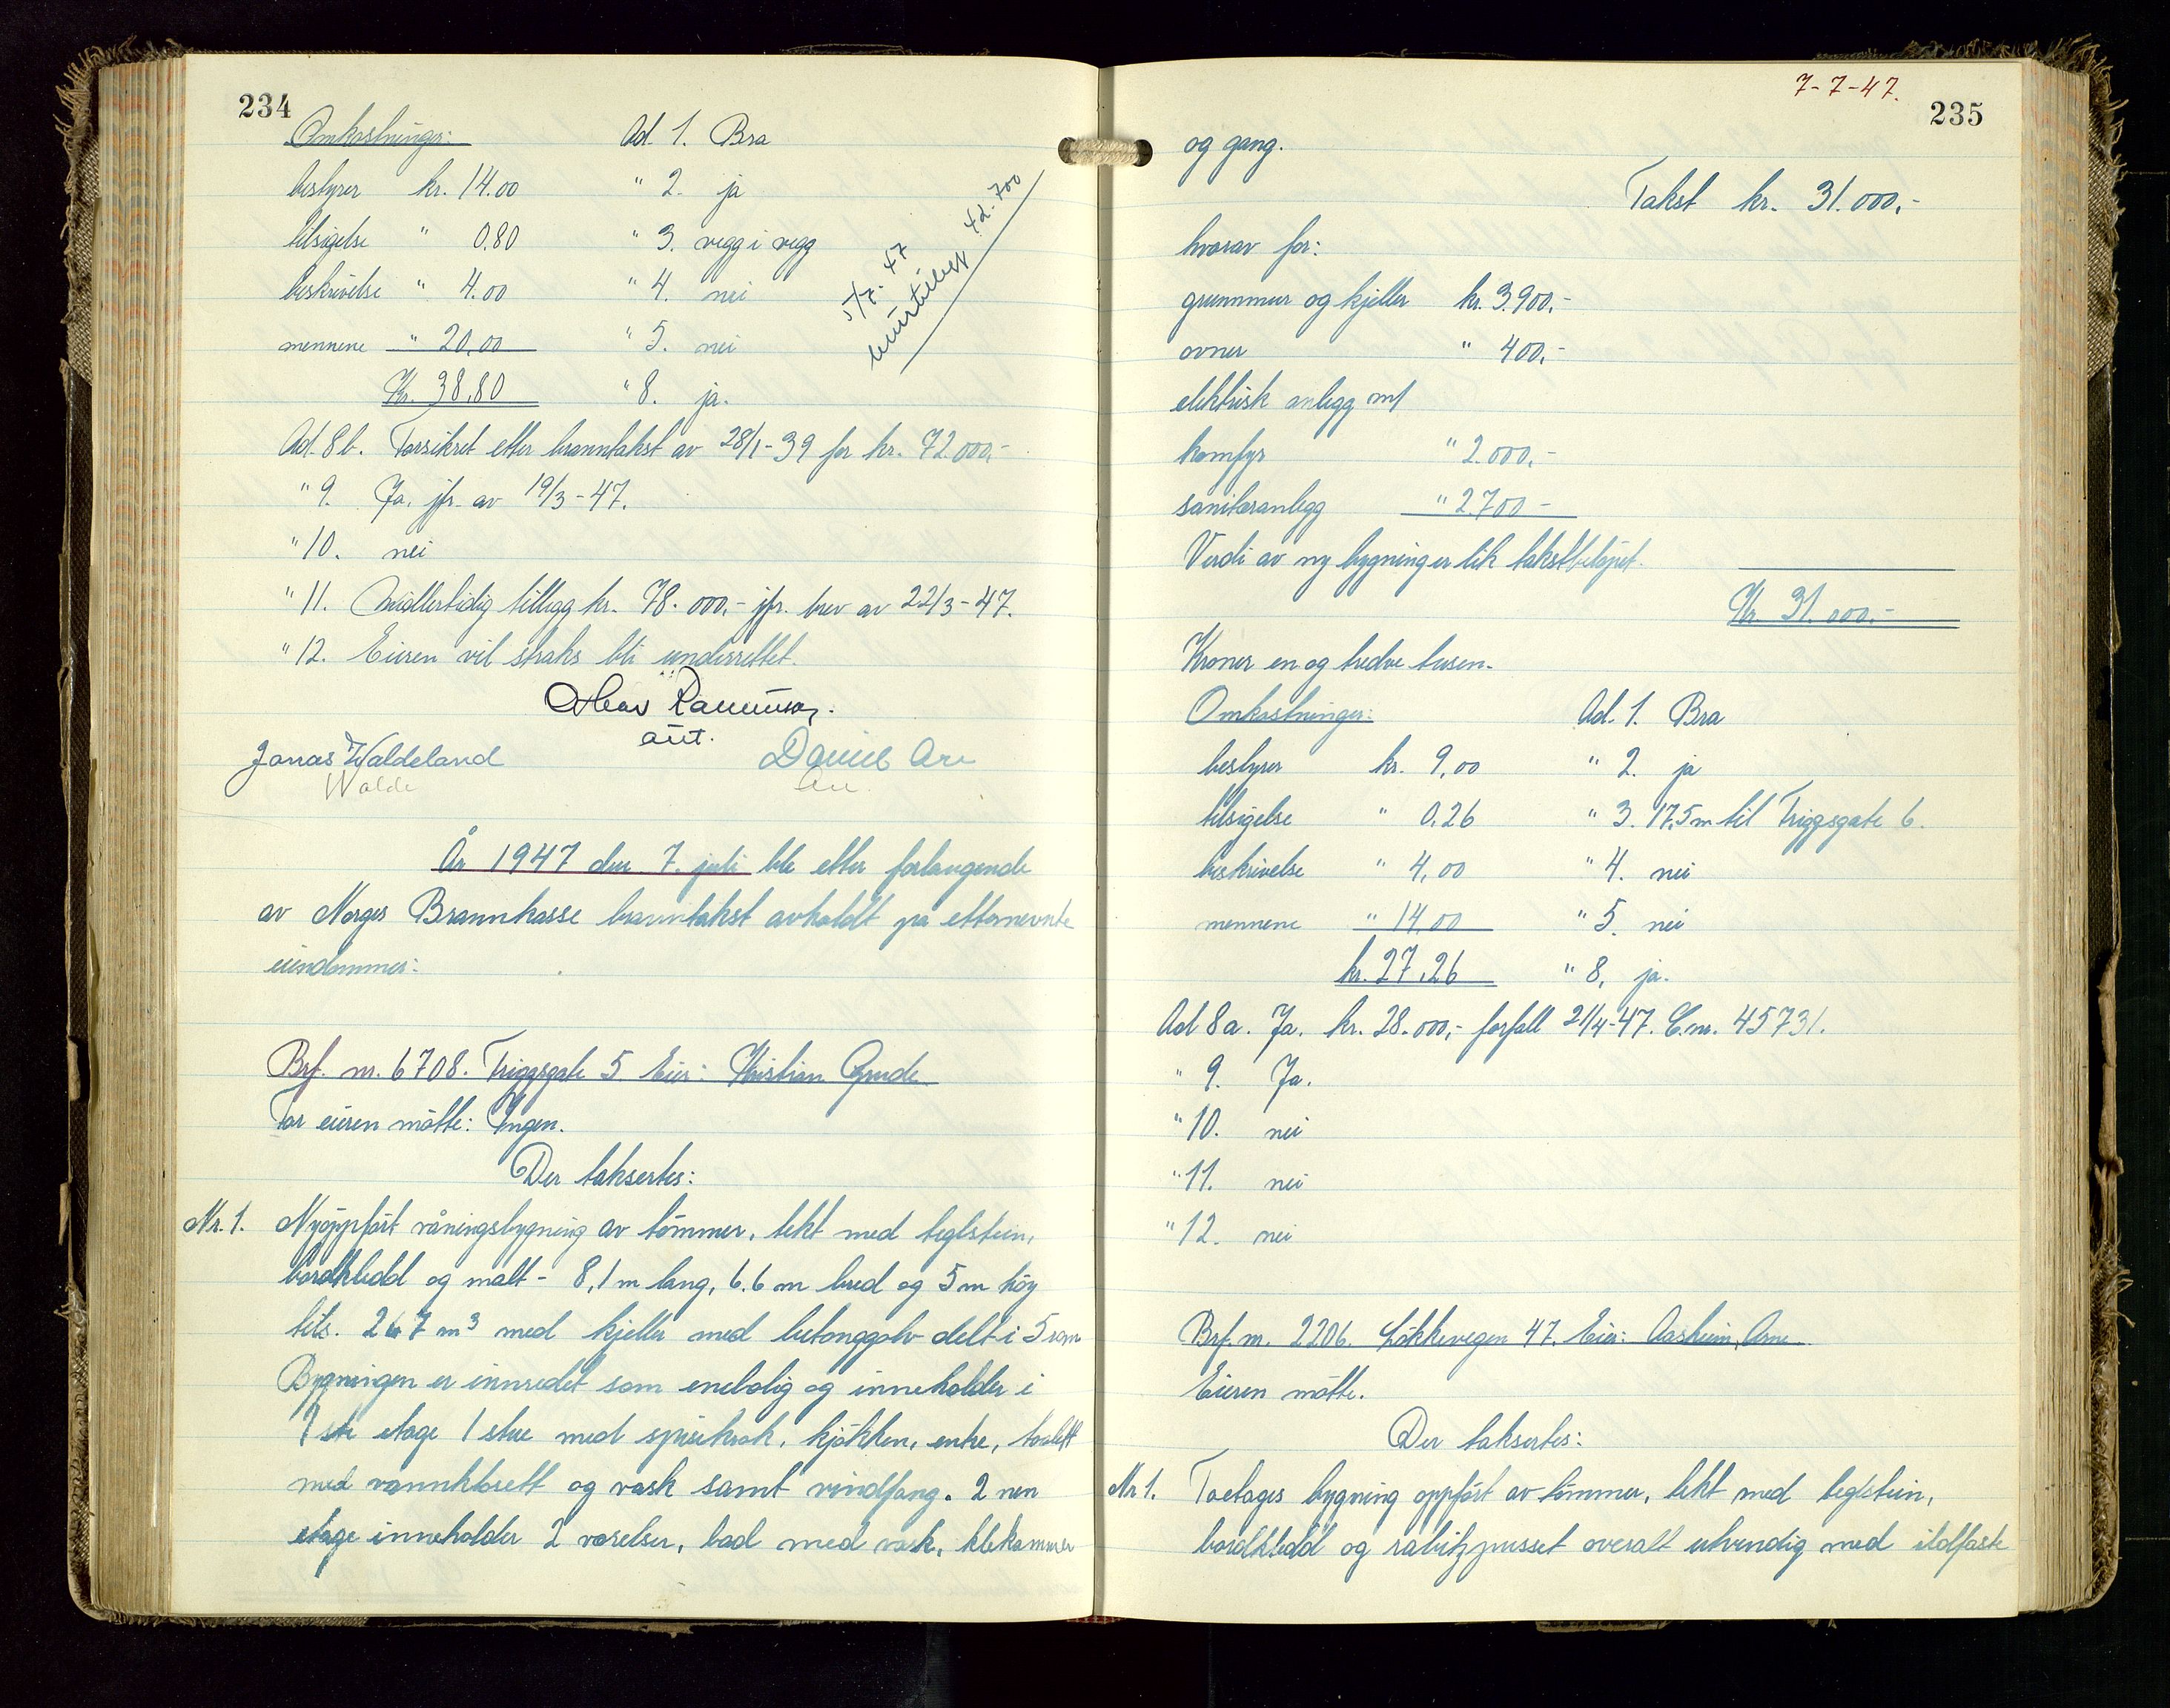 234
Omkostninger: Ad. 1. Bra
bestyrer kr. 14.00 " 2. ja
tilsigelse " 0.80 " 3. vegg i vegg
beskrivelse " 4.00 " 4. nei
mennene " 20,00 " 5. nei
Kr. 38,80 " 8. ja.
5/7-47
42.700
Ad. 8 b. Forsikret etter branntakst av 28/1-39 for kr. 72.000,-
" 9. Ja. jfr. av 19/3-47.
" 10. nei
" 11. Midlertidig tillegg kr. 78.000,- jfr. brev av 22/3-47.
" 12. Eieren vil straks bli underrettet.
aut.
Jonas Waldeland Daniel Are
Walde
År 1947 den 7. juli ble etter forlangende
av Norges Brannkasse branntakst avholdt på etternevnte
eiendommer:
Brf. nr. 6708. Triggsgate 5 Eier: Kristian Grude
For eieren møtte: Ingen.
Der taksertes:
Nr. 1. Nyoppført våningsbygning av tømmer, tekt med teglstein,
bordkledd og malt - 8,1 m lang, 6.6 m bred og 5 m høy
tils. 267 m³ med kjeller med betonggolv delt i 5 rom
Bygningen er innredet som enebolig og inneholder i
1ste etage 1 stue med spisekrok, kjøkken, entre, toalett
med vannklosett og vask samt vindfang. 2 nen
etage inneholder 2 værelser, bad med vask, klekammer
7-7-47.
235
og gang.
Takst kr. 31.000,-
hvorav for:
grunnmur og kjeller kr. 3.900,-
ovner " 400,-
elektrisk anlegg m/
komfyr " 2.000,-
sanitæranlegg " 2.700 -
Verdi av ny bygning er lik takstbeløpet.
Kr. 31.000,-
Kroner en og tredve tusen.
Omkostninger: Ad. 1. Bra
bestyrer kr. 9,00 " 2. ja
tilsigelse " 0.26 " 3. 17,5 m til Triggsgate 6.
beskrivelse " 4,00 " 4. nei
mennene " 14,00 " 5. nei
kr. 27,26 " 8, ja.
Ad 8 a. Ja. kr. 28.000,- forfall 21/4-47. C.nr. 45731.
" 9. Ja.
" 10. nei
" 11. nei
" 12. nei
Brf. nr. 2206. Løkkevegen 47. Eier: Aasheim, Arne
Eieren møtte.
Der taksertes:
Nr 1. Toetages bygning oppført av tømmer, tekt med teglstein,
bordkledd og rabitzpusset overalt utvendig med ildfaste